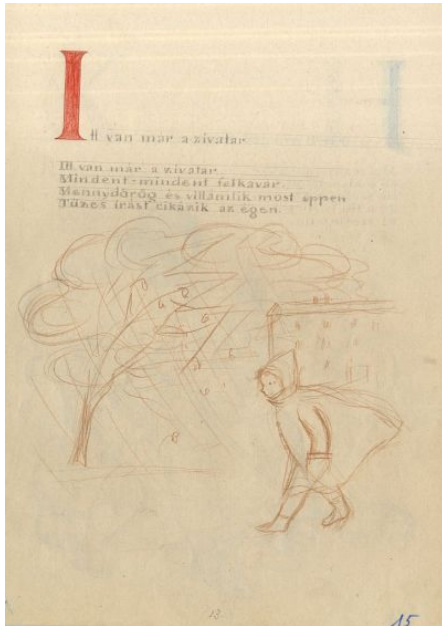 Itt van már a zivatar
Itt van már a zivatar
Mindent-mindent felkavar.
Mennydörög és villámlik most éppen
Tüzes írást cikázik az égen.
13
15